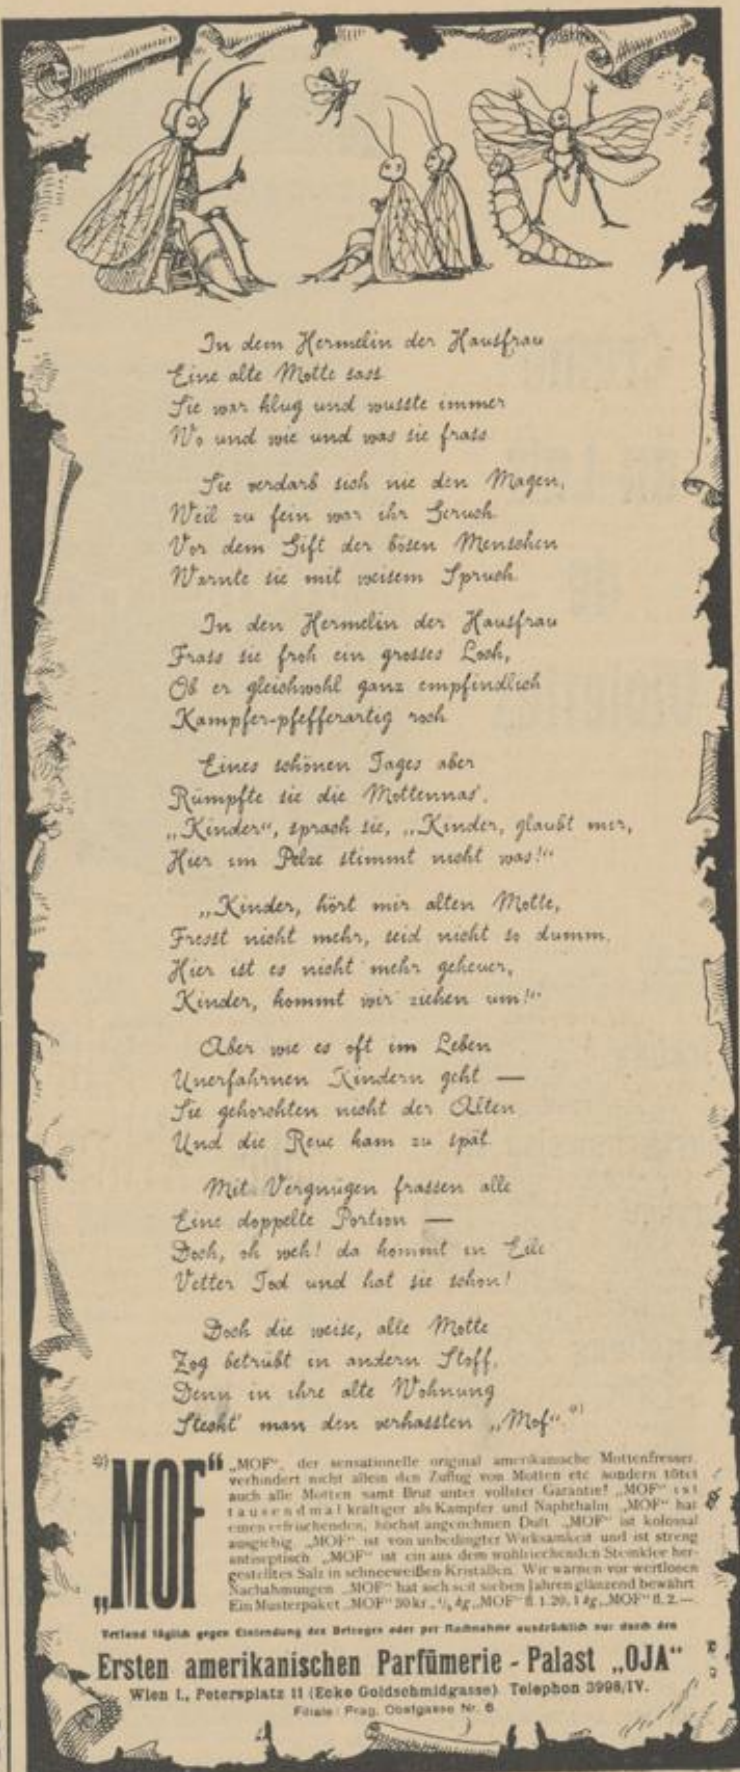 In dem Hermelin der Hausfrau
Eine alte Motte sass.
Sie war klug und wusste immer
Wo und wie und was sie frass.
Sie verdarb sich nie den Magen,
Weil zu fein war ihr Geruch.
Vor dem Gift der bösen Menschen
Warnte sie mit weisem Spruch.
In den Hermelin der Hausfrau
Frass sie froh ein grosses Loch,
Ob er gleichwohl ganz empfindlich
Kampfer-pfefferartig roch.
Eines schönen Tages aber
Rümpfte sie die Mottennas'.
„Kinder“, sprach sie, „Kinder, glaubt mir,
Hier im Pelze stimmt nicht was!“
„Kinder, hört mir alten Motte,
Fresst nicht mehr, seid nicht so dumm.
Hier ist es nicht mehr geheuer,
Kinder, kommt wir ziehen um!“
Aber wie es oft im Leben
Unerfahrnen Kindern geht —
Sie gehorchten nicht der Alten
Und die Reue kam zu spät.
Mit Vergnügen frassen alle
Eine doppelte Portion —
Doch, oh weh! da kommt in Eile
Vetter Tod und hat sie schon!
Doch die weise, alte Motte
Zog betrübt in andern Stoff,
Denn in ihre alte Wohnung
Steckt' man den verhassten „Mof“.*)
*) „MOF“
„MOF“, der sensationelle original amerikanische Mottenfresser,
verhindert nicht allein den Zuflug von Motten etc. sondern tötet
auch alle Motten samt Brut unter vollster Garantie! „MOF“ ist
tausendmal kräftiger als Kampfer und Naphthalin. „MOF“ hat
einen erfrischenden, höchst angenehmen Duft. „MOF“ ist kolossal
ausgiebig. „MOF“ ist von unbedingter Wirksamkeit und ist streng
antiseptisch. „MOF“ ist ein aus dem wohlriechenden Steinklee her-
gestelltes Salz in schneeweißen Kristallen. Wir warnen vor wertlosen
Nachahmungen. „MOF“ hat sich seit sieben Jahren glänzend bewährt.
Ein Musterpaket „MOF“ 50 kr., 1/2 kg „MOF“ fl. 1.20, 1 kg „MOF“ fl. 2.—
Versand täglich gegen Einsendung des Betrages oder per Nachnahme ausdrücklich nur durch den
Ersten amerikanischen Parfümerie - Palast „OJA“
Wien I., Petersplatz 11 (Ecke Goldschmidgasse) Telephon 3998/IV.
Filiale: Prag, Obstgasse Nr. 6